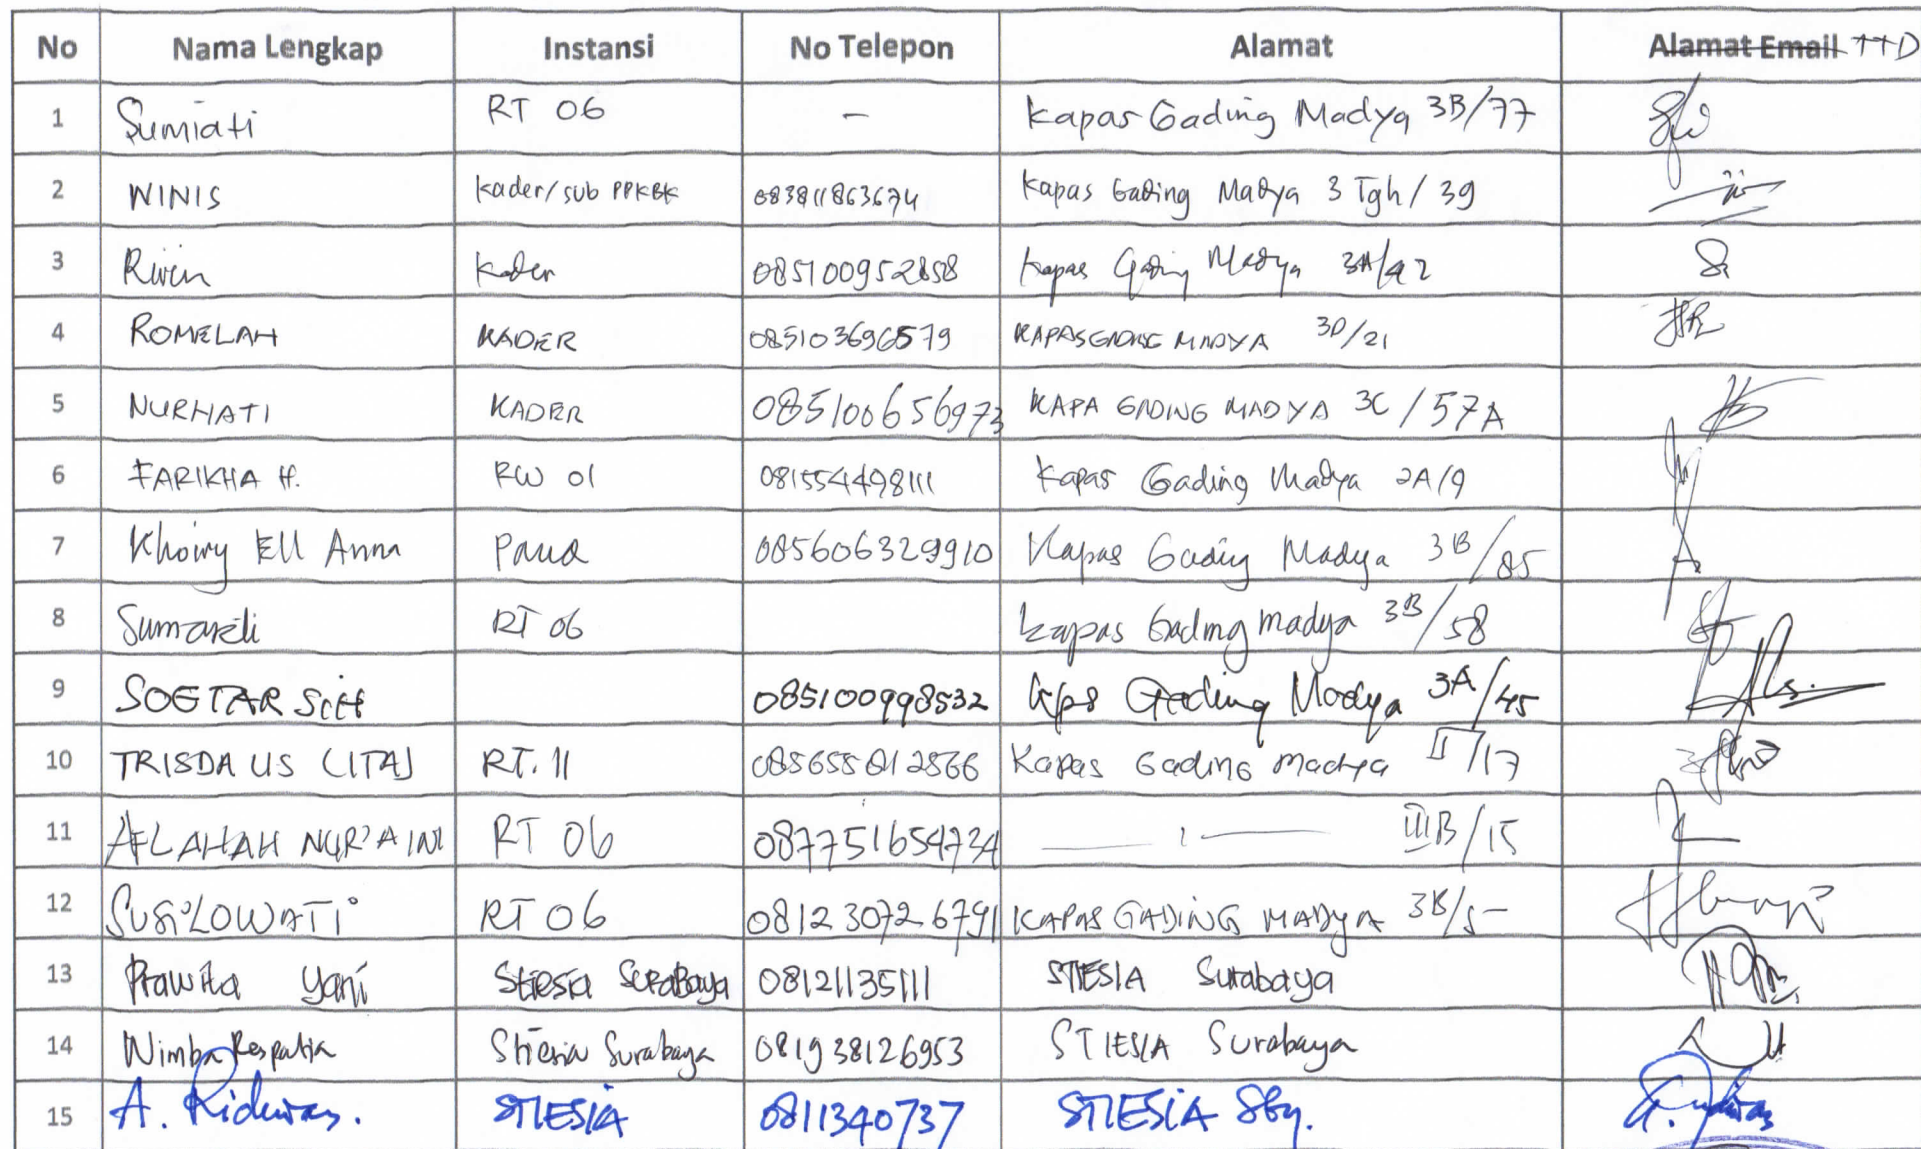 No Nama Lengkap Instansi No Telepon Alamat Alamat Email TTD
1 Sumiati RT 06 - Kapas Gading Madya 3B/77
2 WINIS Kader/sub PPKBK 083811863674 Kapas Gading Madya 3 Tgh/39
3 Rivin Kader 085100952858 Kapas Gading Madya 3A/42
4 ROMELAH KADER 085103696579 KAPAS GADING MADYA 3D/21
5 NURHATI KADER 085100656973 KAPA GADING MADYA 3C/57A
6 FARIKHA H. RW 01 081554498111 Kapas Gading Madya 2A/9
7 Khoiry Ell Anna Paud 085606329910 Kapas Gading Madya 3B/85
8 Sumardi RT 06 Kapas Gading madya 3B/58
9 SOETAR 085100998532 Kps Gading Madya 3A/45
10 TRISDA US (ITA) RT. 11 Kapas Gading madya II/17
11 AFLAHAH NUR'AINI RT 06 087751654734 IIIB/15
12 SUSILOWATI RT 06 081230726791 KAPAS GADING MADYA 3B/5
13 Prawita Yani Stiesia Surabaya 08121135111 STIESIA Surabaya
14 Wimba Respatia Stiesia Surabaya 081938126953 STIESIA Surabaya
15 A. Ridwan. STIESIA 0811340737 STIESIA Sby.